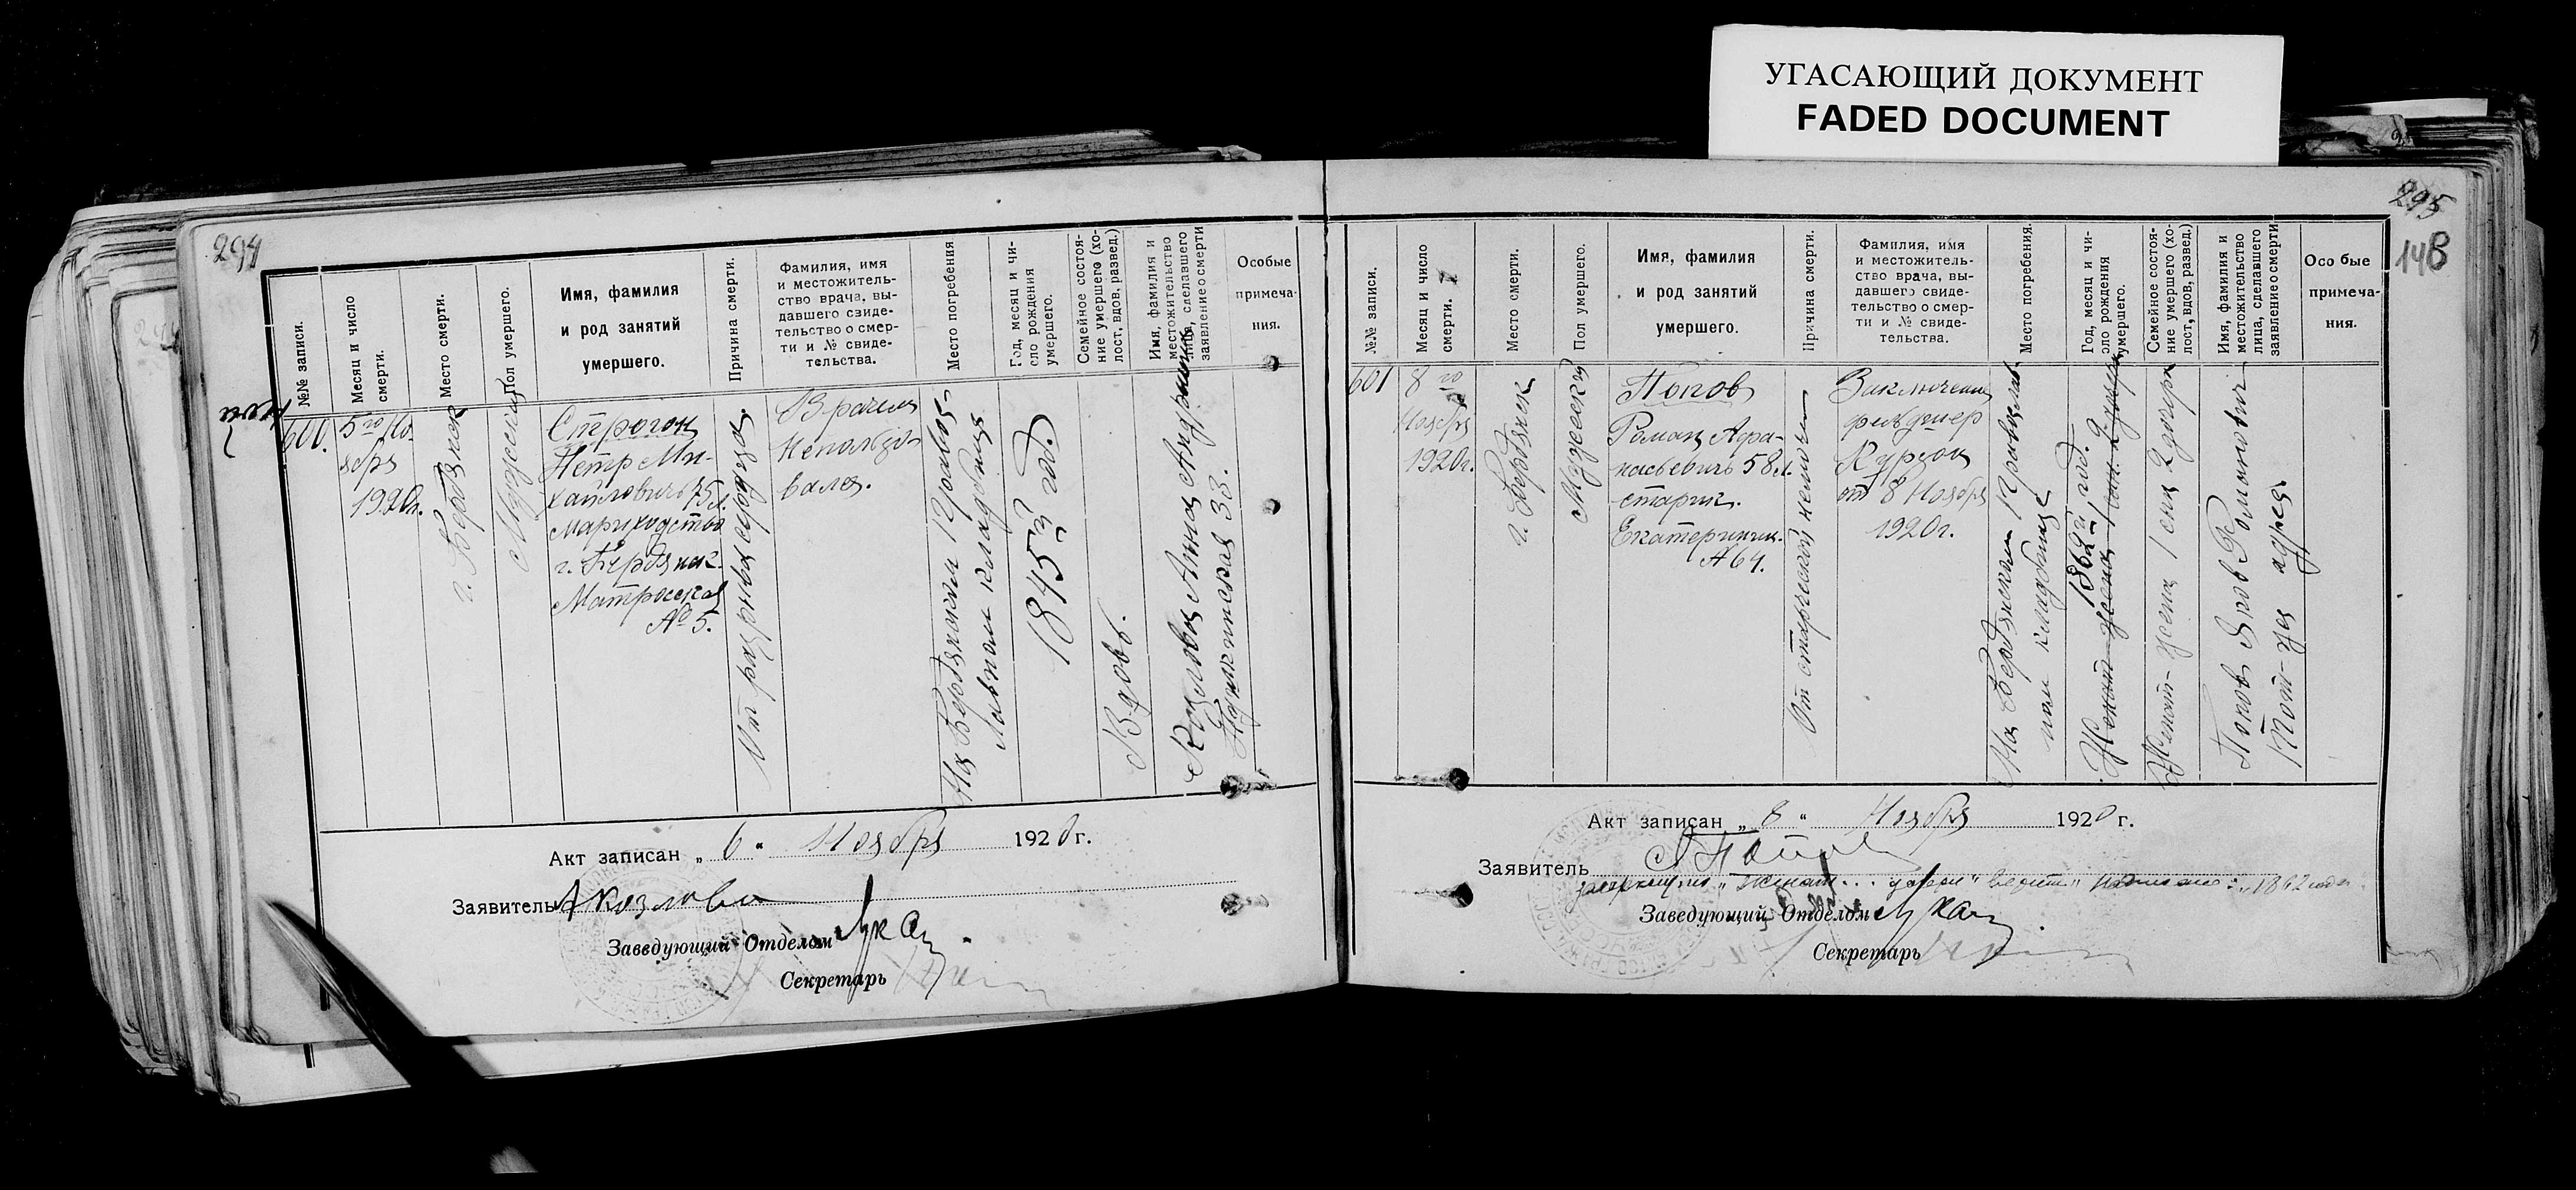 УГАСАЮЩИЙ ДОКУМЕНТ
FADED DOCUMENT
294
№№ записи.
Месяц и число
смерти.
Место смерти.
Пол умершего.
Имя, фамилия
и род занятий
умершего.
Причина смерти.
Фамилия, имя
и местожитель-
ство врача, вы-
давшего свиде-
тельство о смер-
ти и № свиде-
тельства.
Место погребения
Год, месяц и чи-
сло рождения
умершего.
Семейное состоя-
ние умершего (хо-
лост, вдов, развед.)
Имя, фамилия и
местожительство
лица, сделавшего
заявление о смерти
Особые
примеча-
ния.
600.
5го Но-
ября
1920г.
г. Бердянск
Мужской
Строгон
Петр Ми-
хайлович 75 л.
г. Бердянск.
Матросская
№ 5.
От разрыва сердца.
Врачем
Непользо
вался.
На Бердянском Православ
ном кладбище
1845й год.
Вдов.
Козлова Анна Андр
33.
Акт записан „ 6 " Ноября 1920 г.
Заявитель А Козлова
Заведующий Отделом
Секретарь
295
148
№№ записи.
Месяц и число
смерти.
Место смерти.
Пол умершего.
Имя, фамилия
и род занятий
умершего.
Причина смерти.
Фамилия, имя
и местожитель-
ство врача, вы-
давшего свиде-
тельство о смер-
ти и № свиде-
тельства.
Место погребения.
Год, месяц и чи-
сло рождения
умершего.
Семейное состоя-
ние умершего (хо-
лост, вдов, развед.)
Имя, фамилия и
местожительство
лица, сделавшего
заявление о смерти
Осо бые
примеча-
ния.
601
8 го
Ноября
1920г.
г. Бердянск
Мужеский
Попов
Роман Афа-
насьевич 58 л.
старик.
Екатерининск.
№ 64.
От старческой немочи
Заключение
фельдшер
Курсон
от 8 Ноября
1920г.
На Бердянском Православ
ном кладбище
1862й год.
Женат жена 1 сын 2 дочери
Женат - жена 1 сын 2 дочери
Попов Яков Романович
Тот-же адрес
Акт записан „ 8 " Ноября 1920 г.
Заявитель Попов
зачеркнуто „женат... дочери" верить написано: „1862 года
Заведующий Отделом
Секретарь